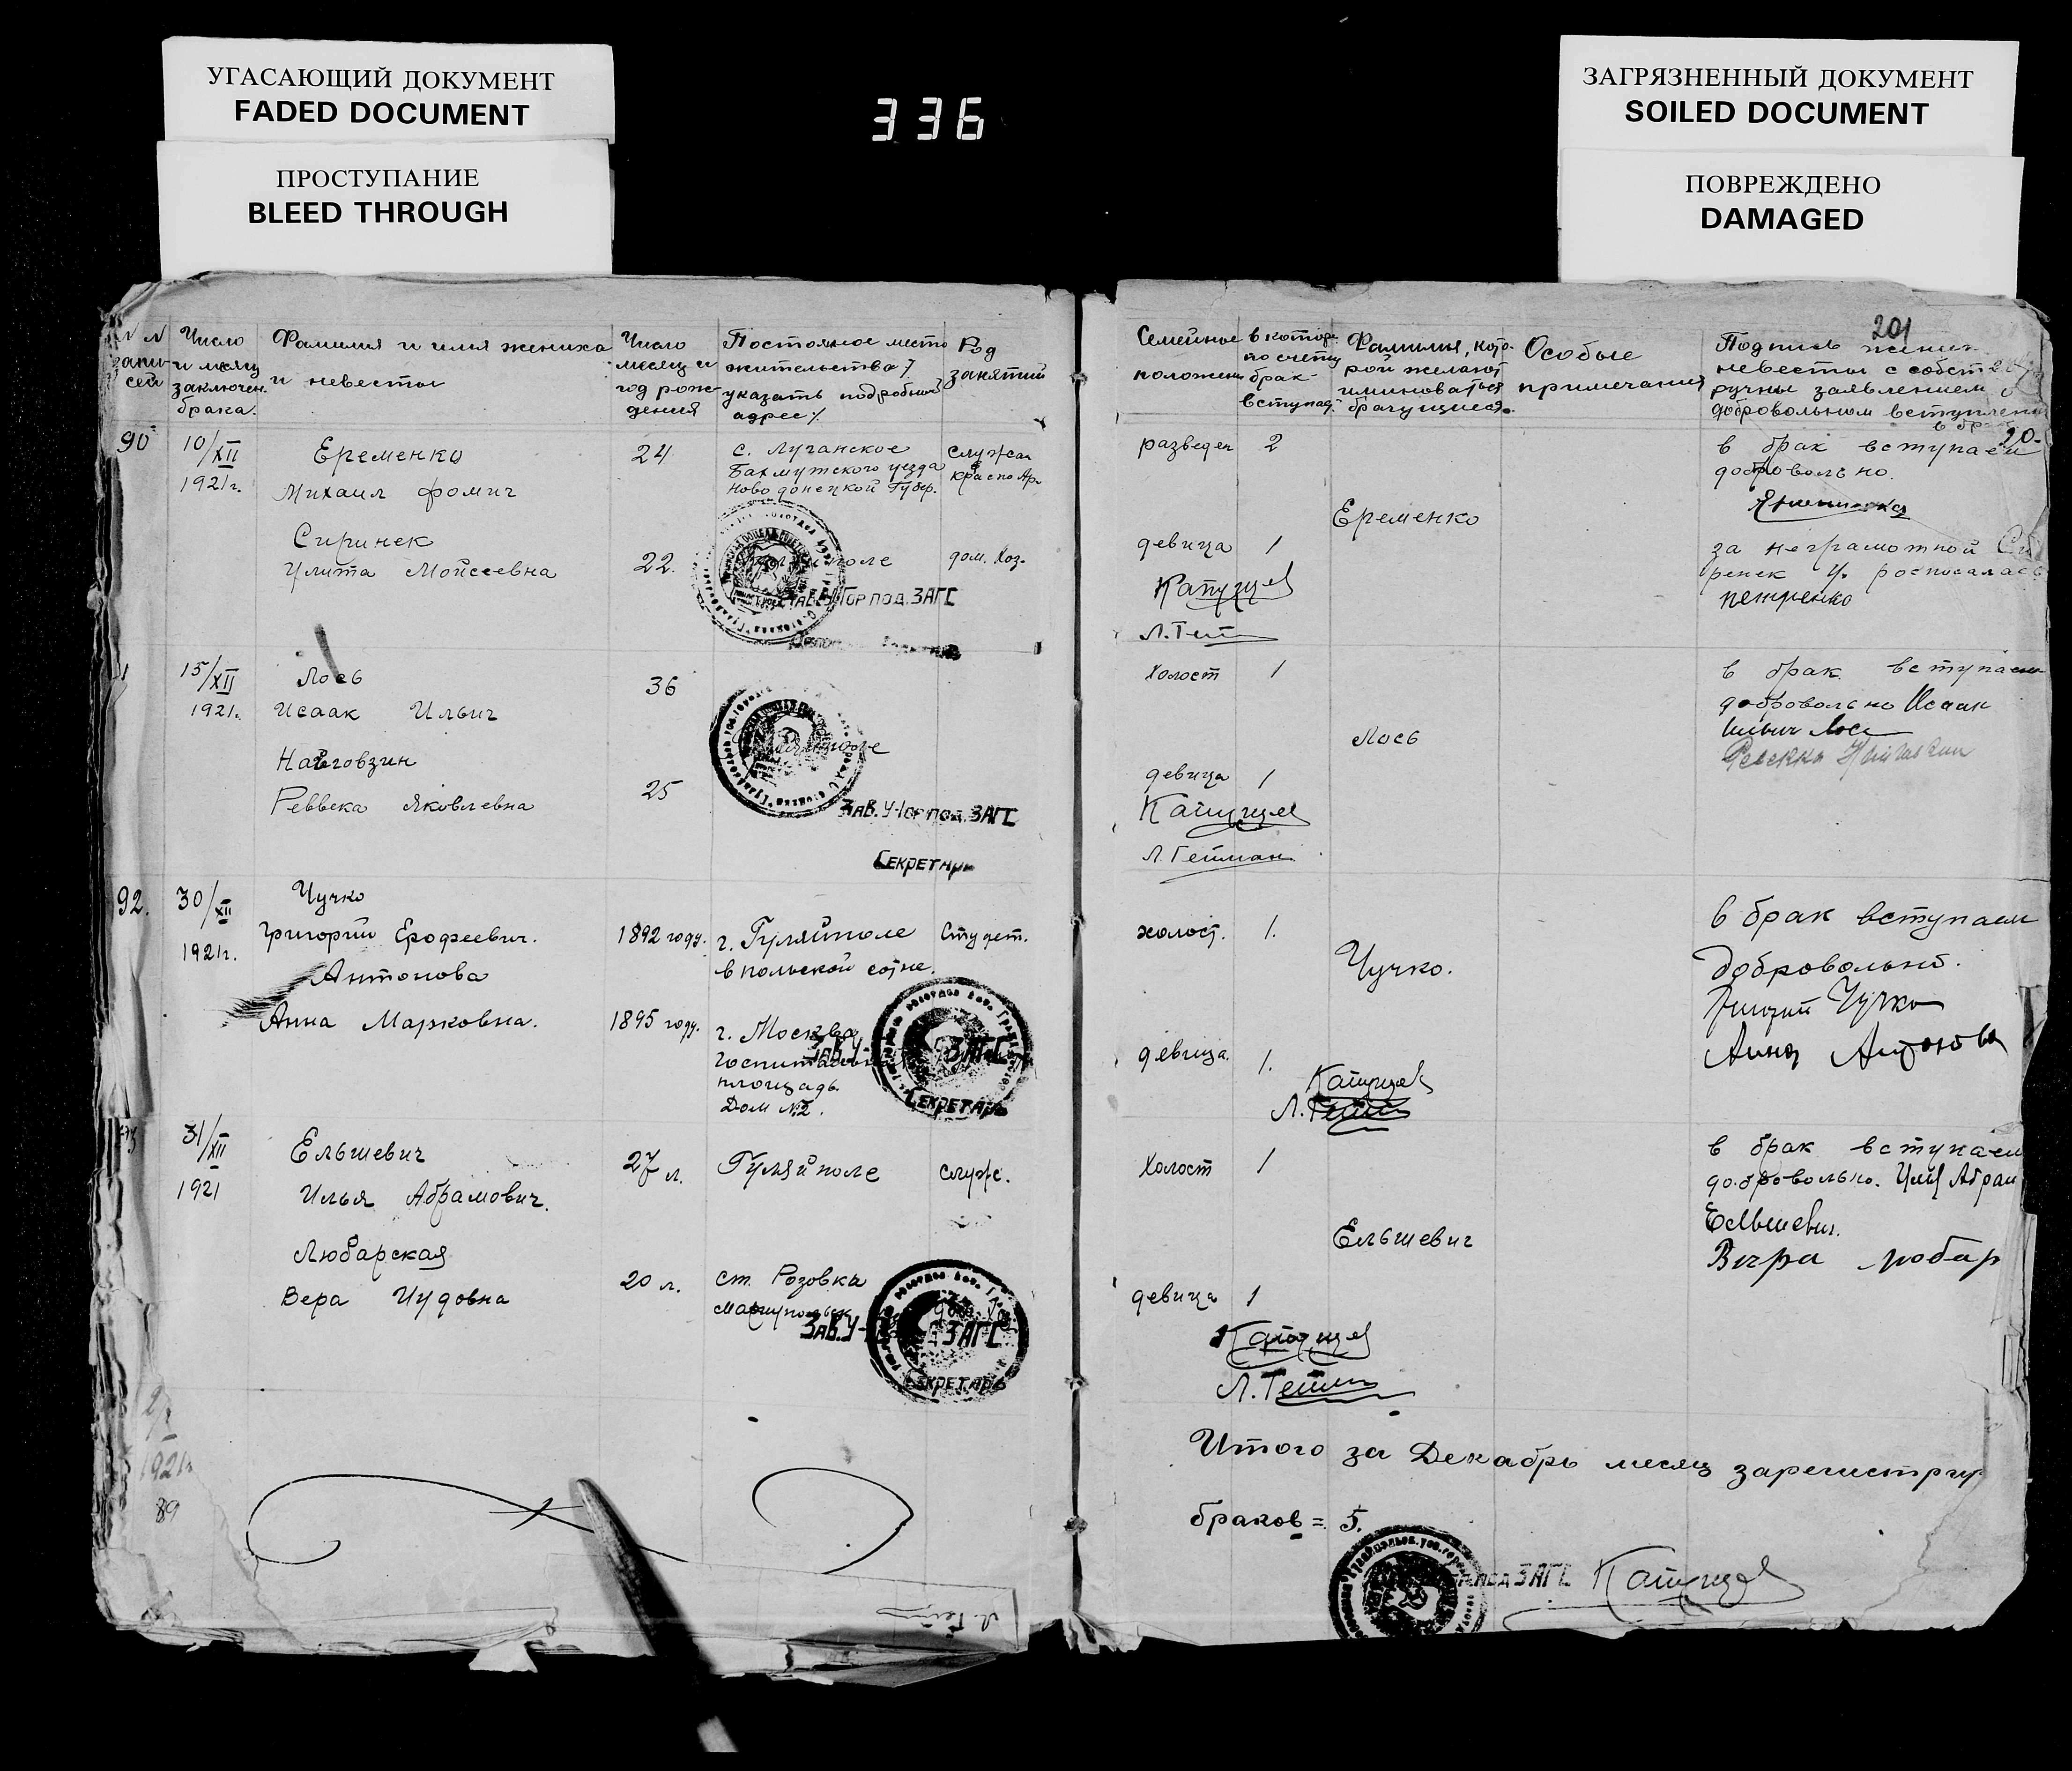 УГАСАЮЩИЙ ДОКУМЕНТ
FADED DOCUMENT
ПРОСТУПАНИЕ
BLEED THROUGH
336
ЗАГРЯЗНЕННЫЙ ДОКУМЕНТ
SOILED DOCUMENT
ПОВРЕЖДЕНО
DAMAGED
N N запи-сей
Число и месяц заключен. брака.
Фамилия и имя жениха и невесты
Число месяц и год рож-дения
Постоянное место жительства / указать подробный адрес /.
Род занятий
90
10/XII
1921г.
Еременко
Михаил Фомич
24
с. Луганское
Бахмутского уезда
Ново донецкой Губер.
Служащ
Красно Ар.
Сиринек
Улита Мойсеевна
22.
дом. хоз.
Гор под. ЗАГС
15/XII
1921г.
Лось
Исаак Ильич
36
Найговзин
Реввека Яковлевна
25
Зав. У-Гор под. ЗАГС
Секретарь
92.
30/XII
1921г.
Чучко
Григорий Ерофеевич.
1892 году.
г. Гуляйполе
в польской сотне.
Студет.
Антонова
Анна Марковна.
1895 году.
г. Москва
Госпитальная
площадь
Дом №2.
Зав. У ЗАГС
Секретарь
31/XII
1921
Ельшевич
Илья Абрамович.
27 л.
Гуляйполе
служ.
Любарская
Вера Иудовна
20 л.
ст. Розовка
Зав. У ЗАГС
Секретарь
1921г
89
201
Семейное положени
в котор. по счету брак вступает
Фамилия, кото-рой желают именоваться брачущиеся.
Особые примечания
Подпись жених
невесты с собст
ручны заявлением о
добровольном вступлении
в брак
разведен 2
Еременко
в брак вступаем
добровольно.
девица 1
за неграмотной Си
ренек У. росписалась
Петренко
холост 1
Лось
в брак вступаем
добровольно Исаак
Ильич Лось
девица 1
Л. Гейман
холост. 1.
Чучко.
в брак вступаем
добровольно.
Григорий Чучко
Анна Антонова
девица. 1.
холост 1
Ельшевич
в брак вступаем
добровольно. Илья Абрам
Ельшевич.
Вера Любар
девица 1
Итого за Декабрь месяц зарегистрир
браков = 5.
ЗАГС